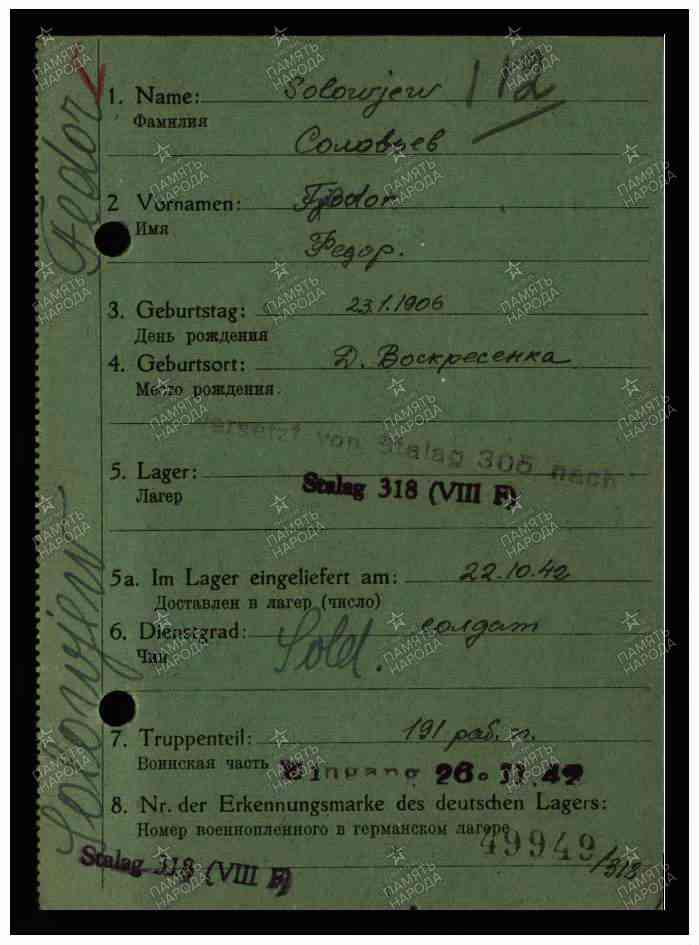 1. Name: Solowjew 112
Фамилия
Соловьев
2 Vornamen: Fjodor
Имя
Федор.
3. Geburtstag: 23.1.1906
День рождения
4. Geburtsort: Д. Воскресенка
Место рождения.
versetzt von Stalag 305 nach
5. Lager: Stalag 318 (VIII F)
Лагер
5a. Im Lager eingeliefert am: 22.10.42
Доставлен в лагер (число)
6. Dienstgrad: солдат
Sold.
Чин
7. Truppenteil: 191 раб. п.
Воинская часть Eingang 26. 11. 42
8. Nr. der Erkennungsmarke des deutschen Lagers:
Номер военнопленного в германском лагере
49949/318
Stalag 318 (VIII F)
Solowjew Fedor
ПАМЯТЬ
НАРОДА